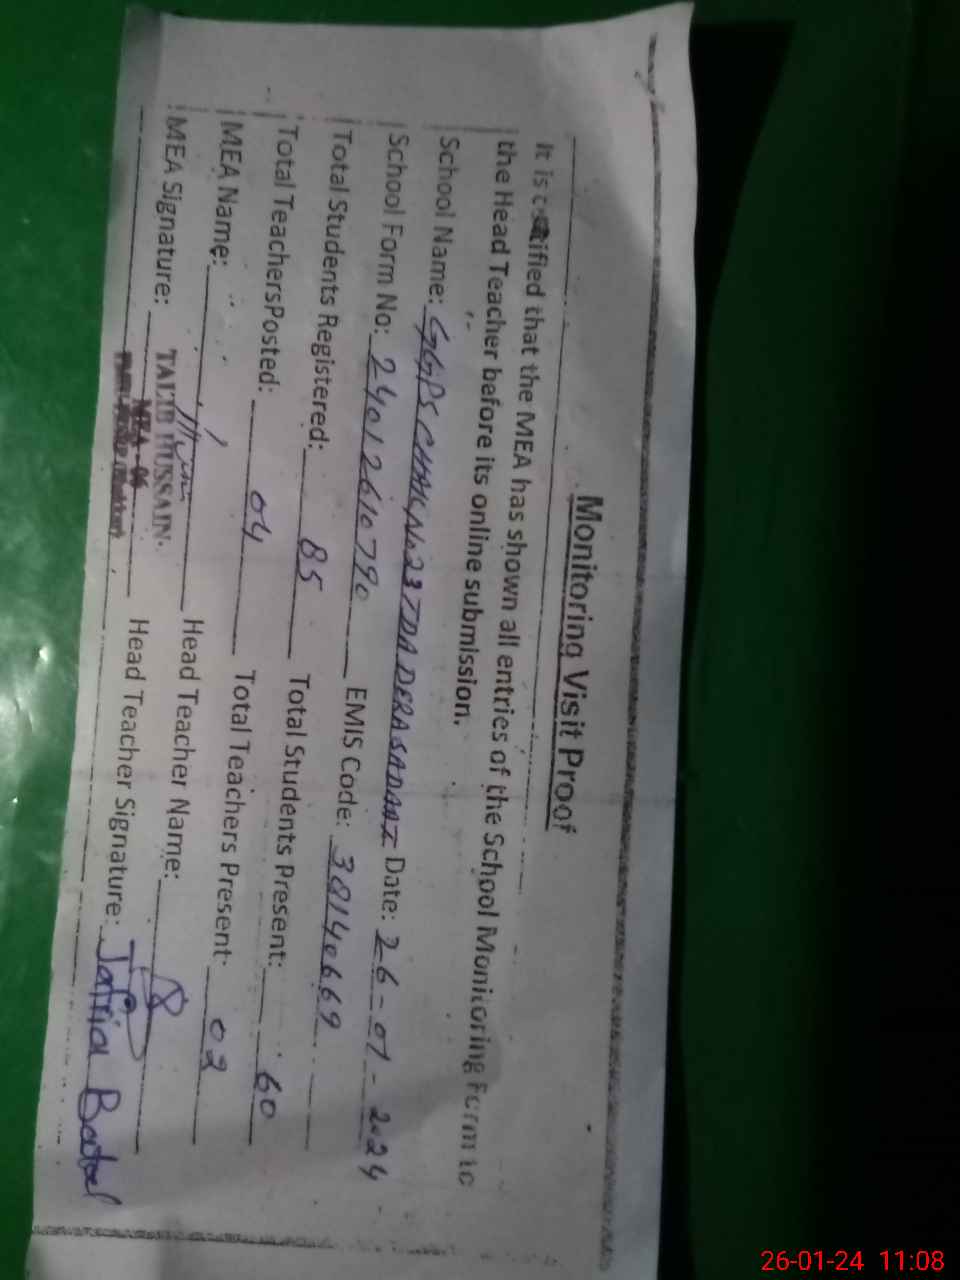 Monitoring Visit Proof
It is certified that the MEA has shown all entries of the School Monitoring Form to
the Head Teacher before its online submission.
School Name: GGPS CHAK No 237DA DERA SADAAT Date: 26-01-2024
School Form No: 24012610790 EMIS Code: 38140669
Total Students Registered: 85 Total Students Present: 60
Total TeachersPosted: 04 Total Teachers Present: 03
MEA Name: Head Teacher Name:
MEA Signature: TALIB HUSSAIN Head Teacher Signature: Batool
MEA - 06
26-01-24 11:08